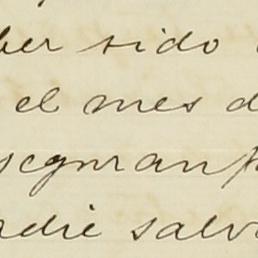 ber sido
el mes d
seguran
adie salv